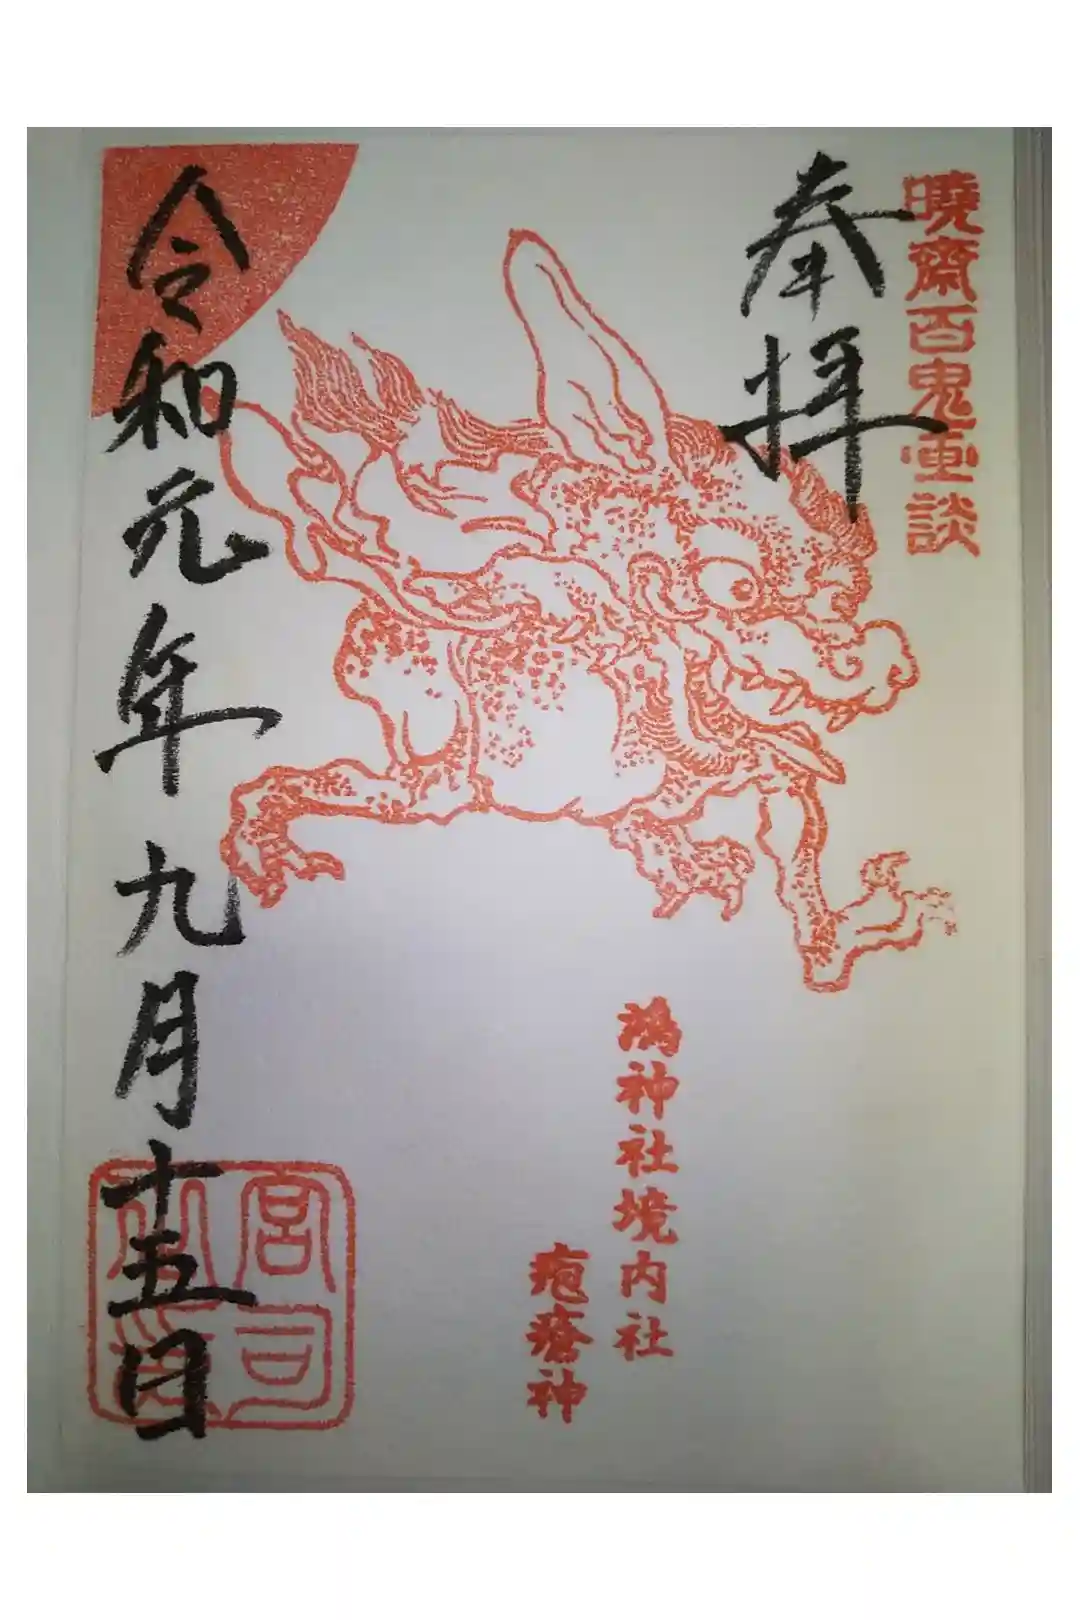 暁斎百鬼画談
奉拝
鴻神社境内社
疱瘡神
宮司
令和元年九月十五日